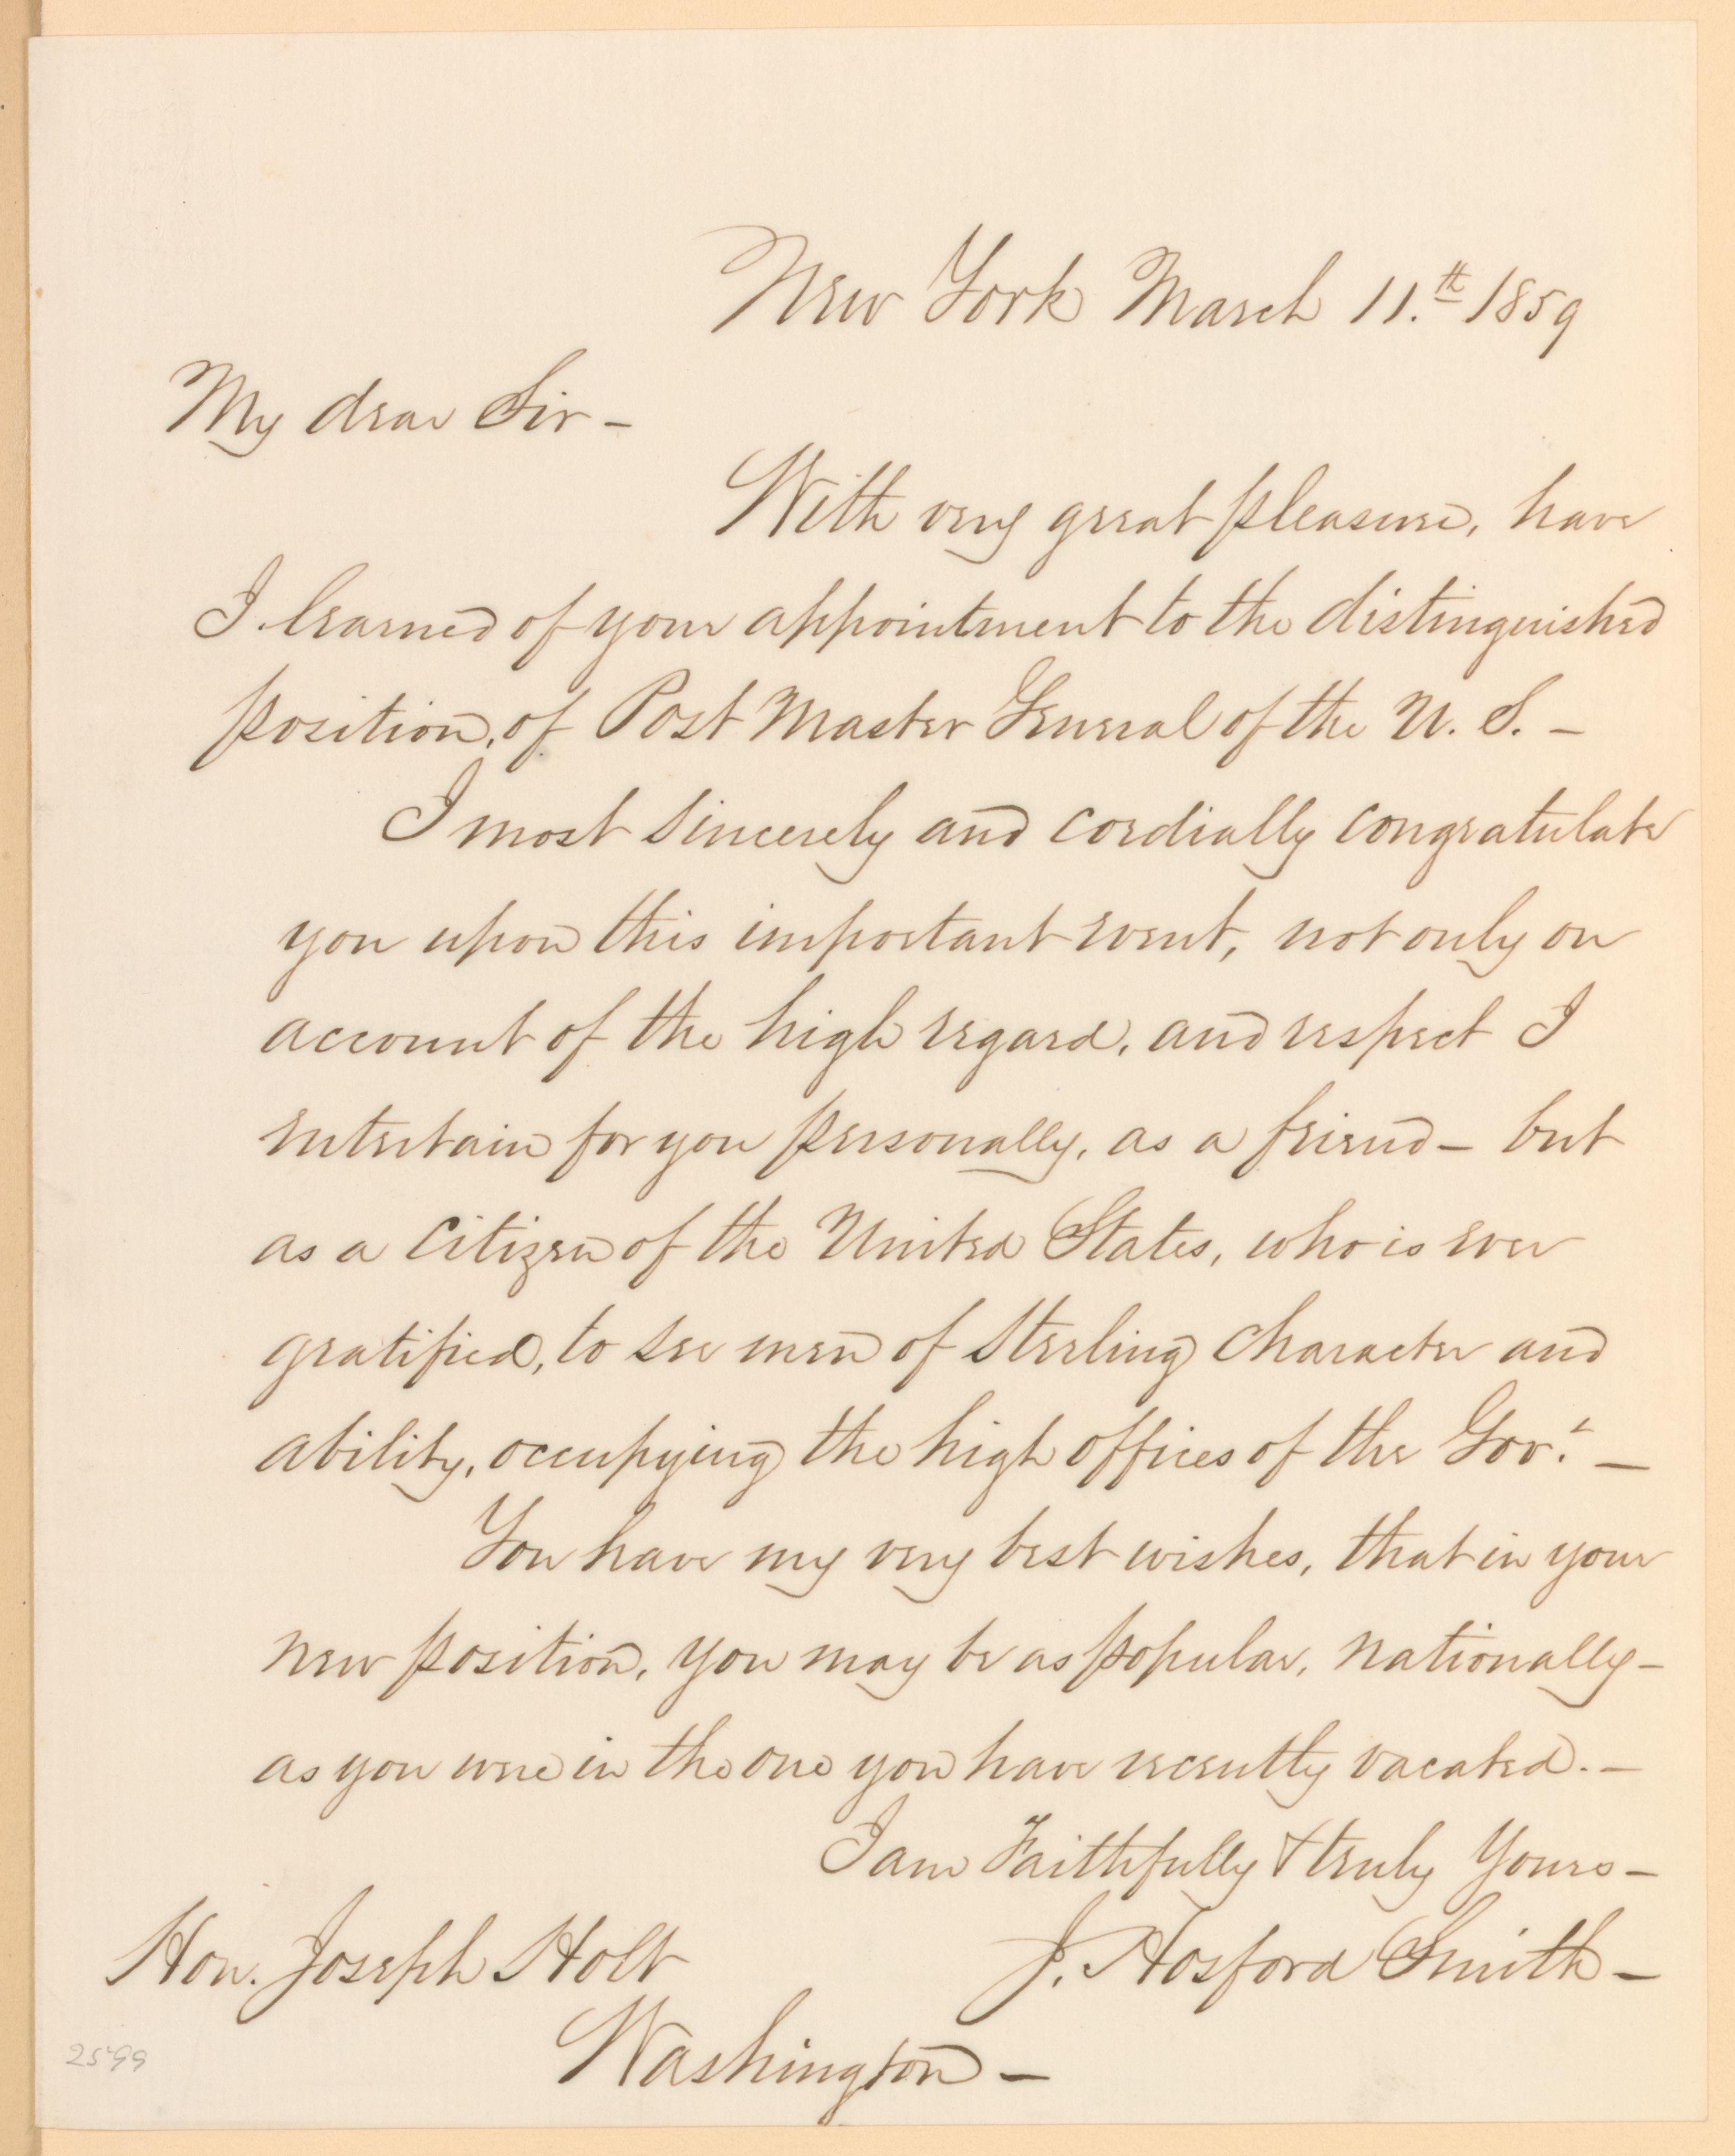 New York March 11.th 1859
My dear Sir -
With very great pleasure, have
I learned of your appointment to the distinguished
position, of Post Master General of the U. S. -
I most sincerely and cordially congratulate
you upon this important event, not only on
account of the high regard, and respect I
entertain for you personally, as a friend - but
as a citizen of the United States, who is ever
gratified, to see men of sterling character and
ability, occupying the high offices of the Gov.t -
You have my very best wishes, that in your
new position, you may be as popular, nationally -
as you were in the one you have recently vacated. -
I am Faithfully & truly Yours -
J. Hosford Smith -
Hon. Joseph Holt
Washington -
2599